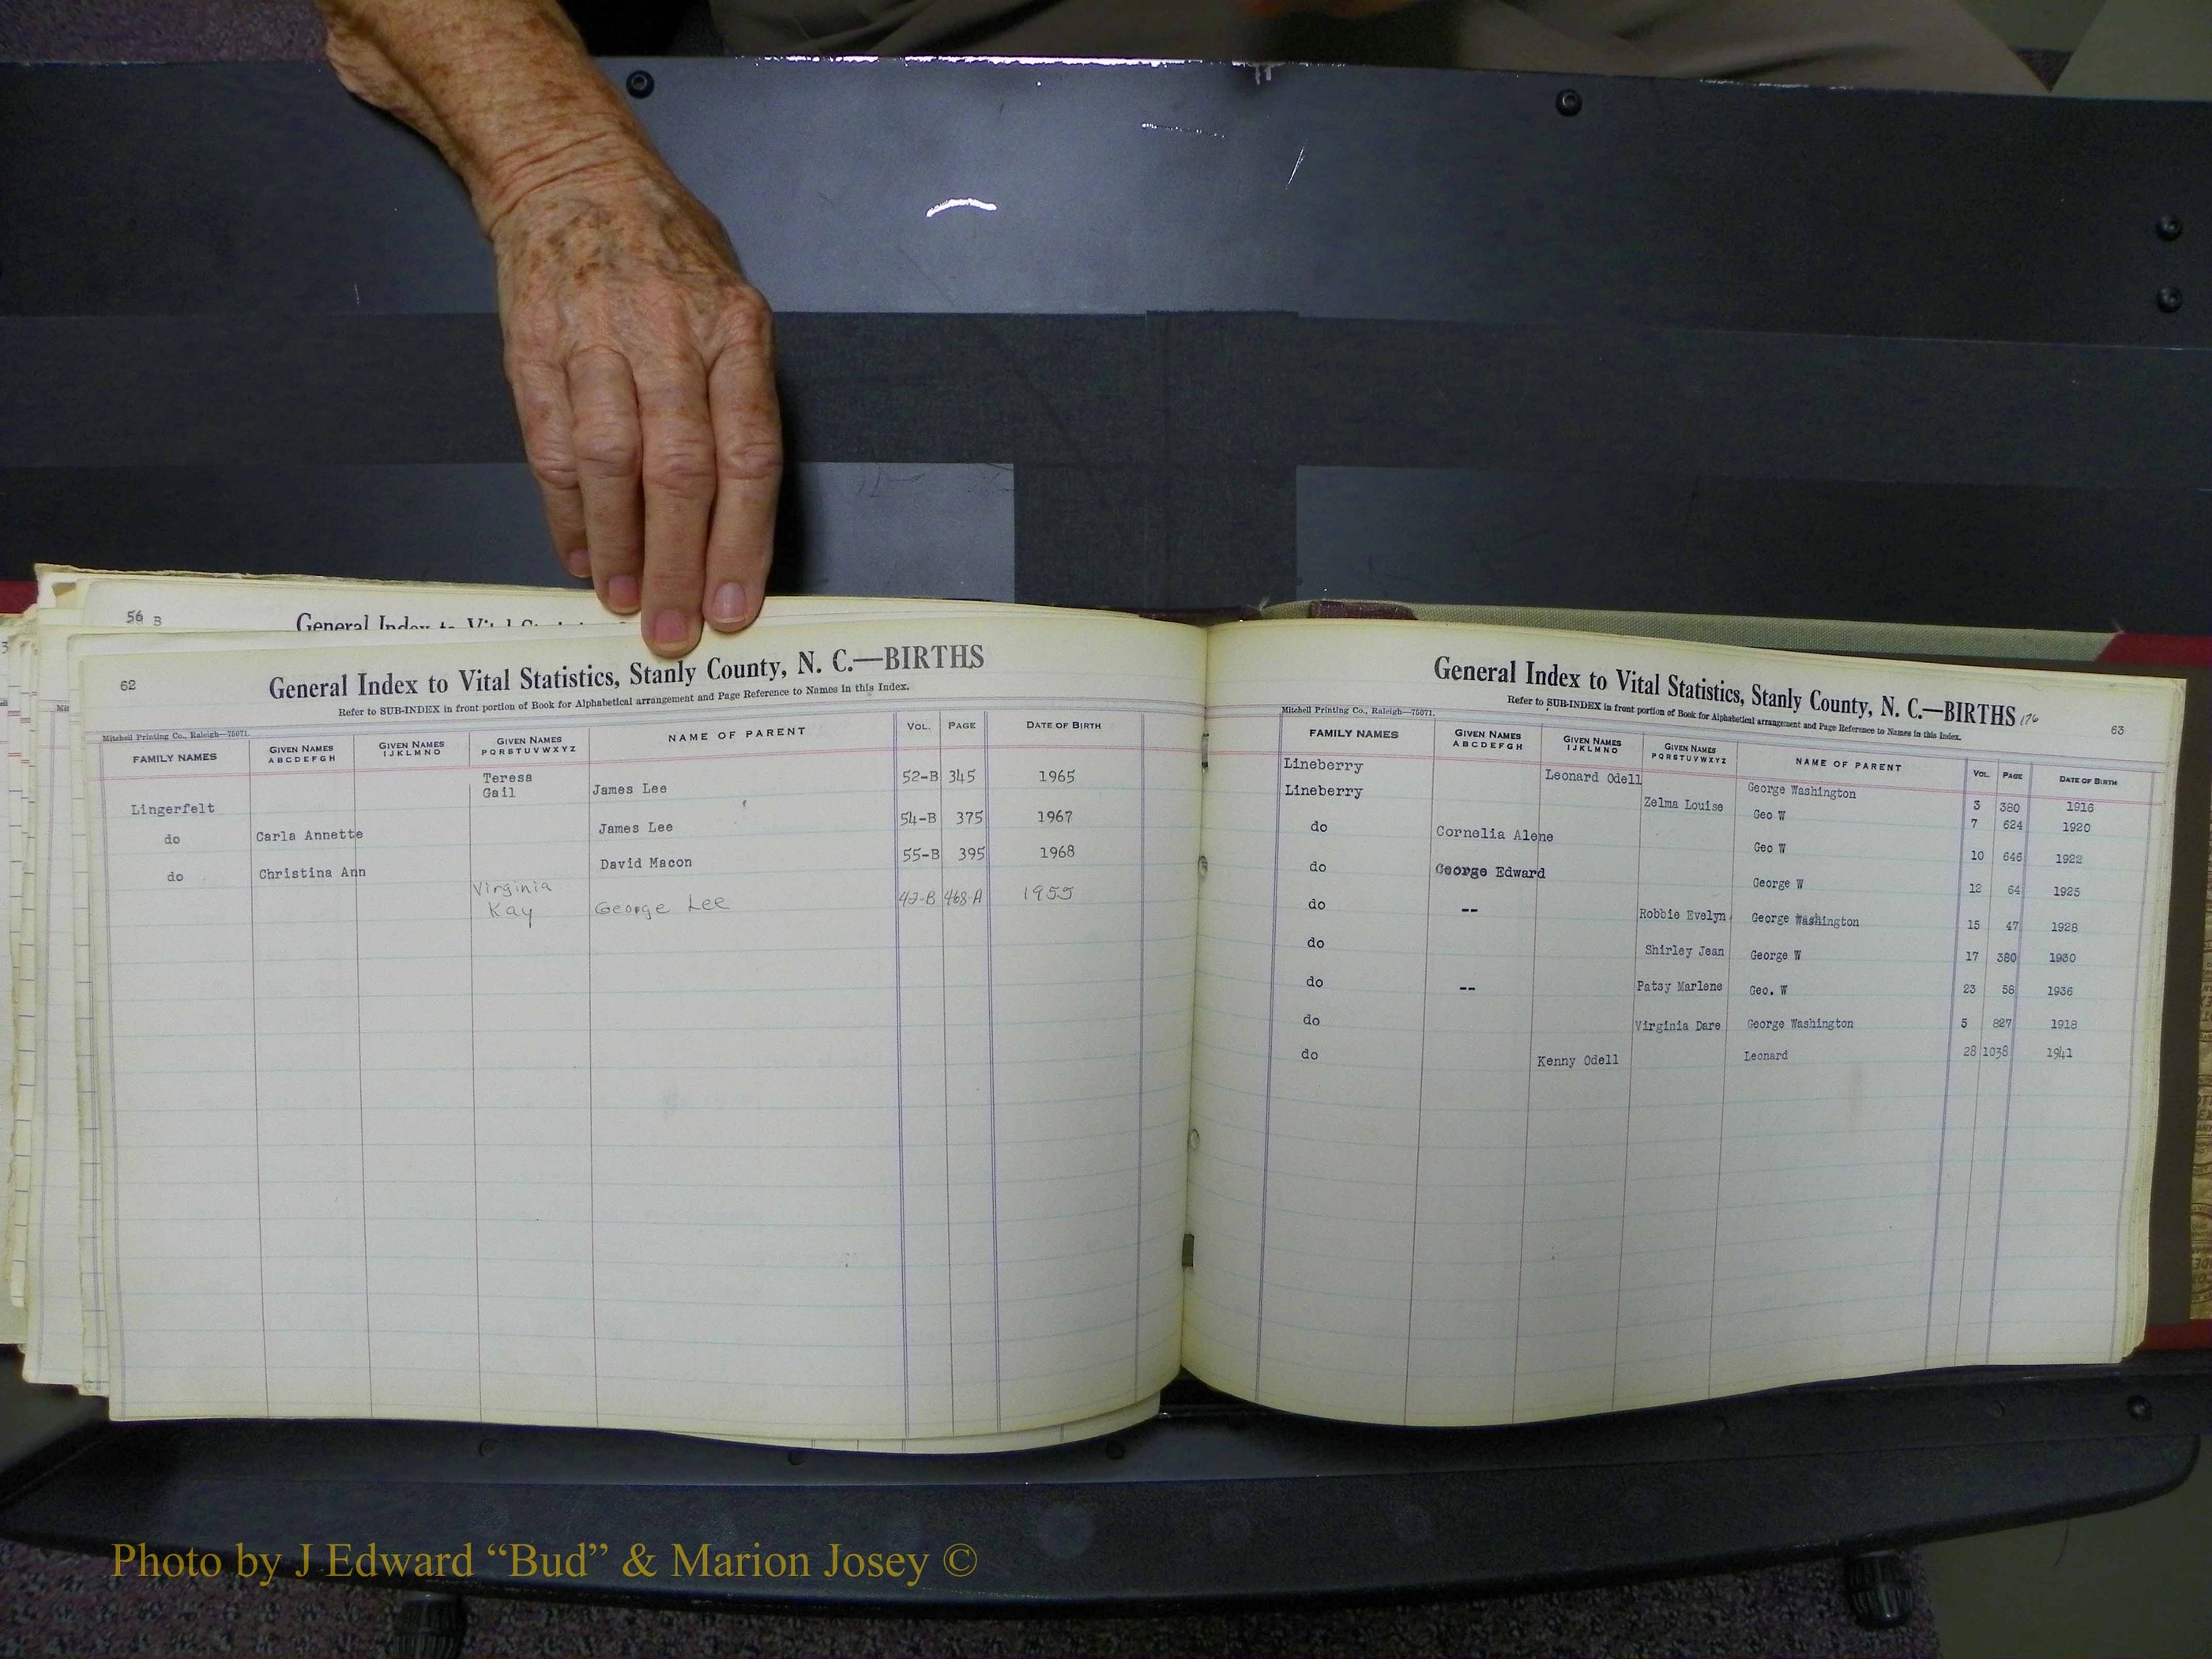 56 B
General Index to Vital Statistics
62
General Index to Vital Statistics, Stanly County, N. C.—BIRTHS
Refer to SUB-INDEX in front portion of Book for Alphabetical arrangement and Page Reference to Names in this Index.
Mitchell Printing Co., Raleigh—75071.
FAMILY NAMES GIVEN NAMES ABCDEFGH GIVEN NAMES IJKLMNO GIVEN NAMES PQRSTUVWXYZ NAME OF PARENT VOL. PAGE DATE OF BIRTH
Lingerfelt Teresa Gail James Lee 52-B 345 1965
do Carla Annette James Lee 54-B 375 1967
do Christina Ann David Macon 55-B 395 1968
Virginia Kay George Lee 42-B 468-A 1955
General Index to Vital Statistics, Stanly County, N. C.—BIRTHS 176
63
Refer to SUB-INDEX in front portion of Book for Alphabetical arrangement and Page Reference to Names in this Index.
Mitchell Printing Co., Raleigh—75071.
FAMILY NAMES GIVEN NAMES ABCDEFGH GIVEN NAMES IJKLMNO GIVEN NAMES PQRSTUVWXYZ NAME OF PARENT VOL. PAGE DATE OF BIRTH
Lineberry Leonard Odell George Washington 3 380 1916
Lineberry Zelma Louise Geo W 7 624 1920
do Cornelia Alene Geo W 10 646 1922
do George Edward George W 12 64 1925
do -- Robbie Evelyn George Washington 15 47 1928
do Shirley Jean George W 17 380 1930
do -- Patsy Marlene Geo. W 23 58 1936
do Virginia Dare George Washington 5 827 1918
do Kenny Odell Leonard 28 1038 1941
Photo by J Edward “Bud” & Marion Josey ©